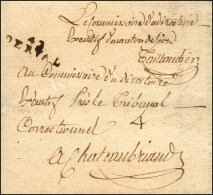 Le Commissaire du directoire
Executif du canton de
42
DERVAL
Au Commissaire du directoire
Executif près le Tribunal
Correctionnel
4
A Chateaubriand